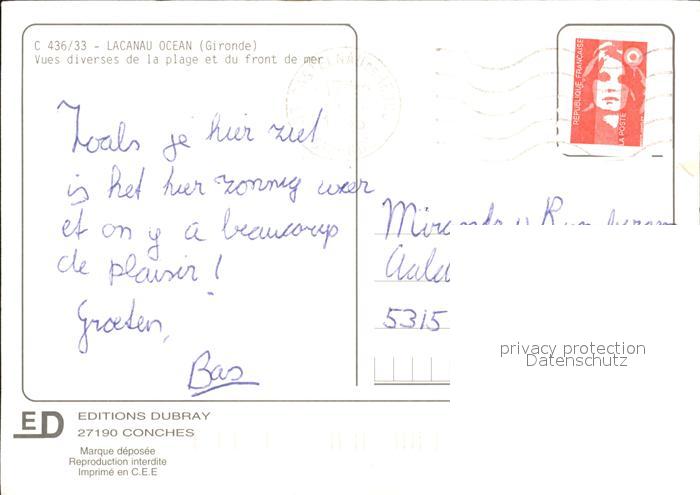 C 436/33 - LACANAU OCEAN (Gironde)
Vues diverses de la plage et du front de mer
REPUBLIQUE FRANÇAISE
LA POSTE
Zoals je hier ziet
is het hier zonnig weer
et on y a beaucoup
de plaisir !
Groeten,
Bas
5315
privacy protection
Datenschutz
ED
EDITIONS DUBRAY
27190 CONCHES
Marque déposée
Reproduction interdite
Imprimé en C.E.E